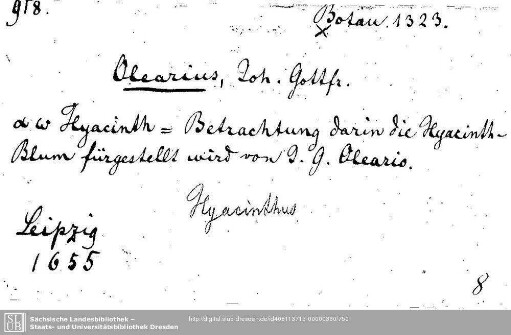 918.
Botan. 1323.
Olearius, Joh. Gottfr.
α ω Hyacinth = Betrachtung darin die Hyacinth-
Blum fürgestellt wird von J. G. Oleario.
Hyacinthus
Leipzig
1655
8
Sächsische Landesbibliothek –
Staats- und Universitätsbibliothek Dresden